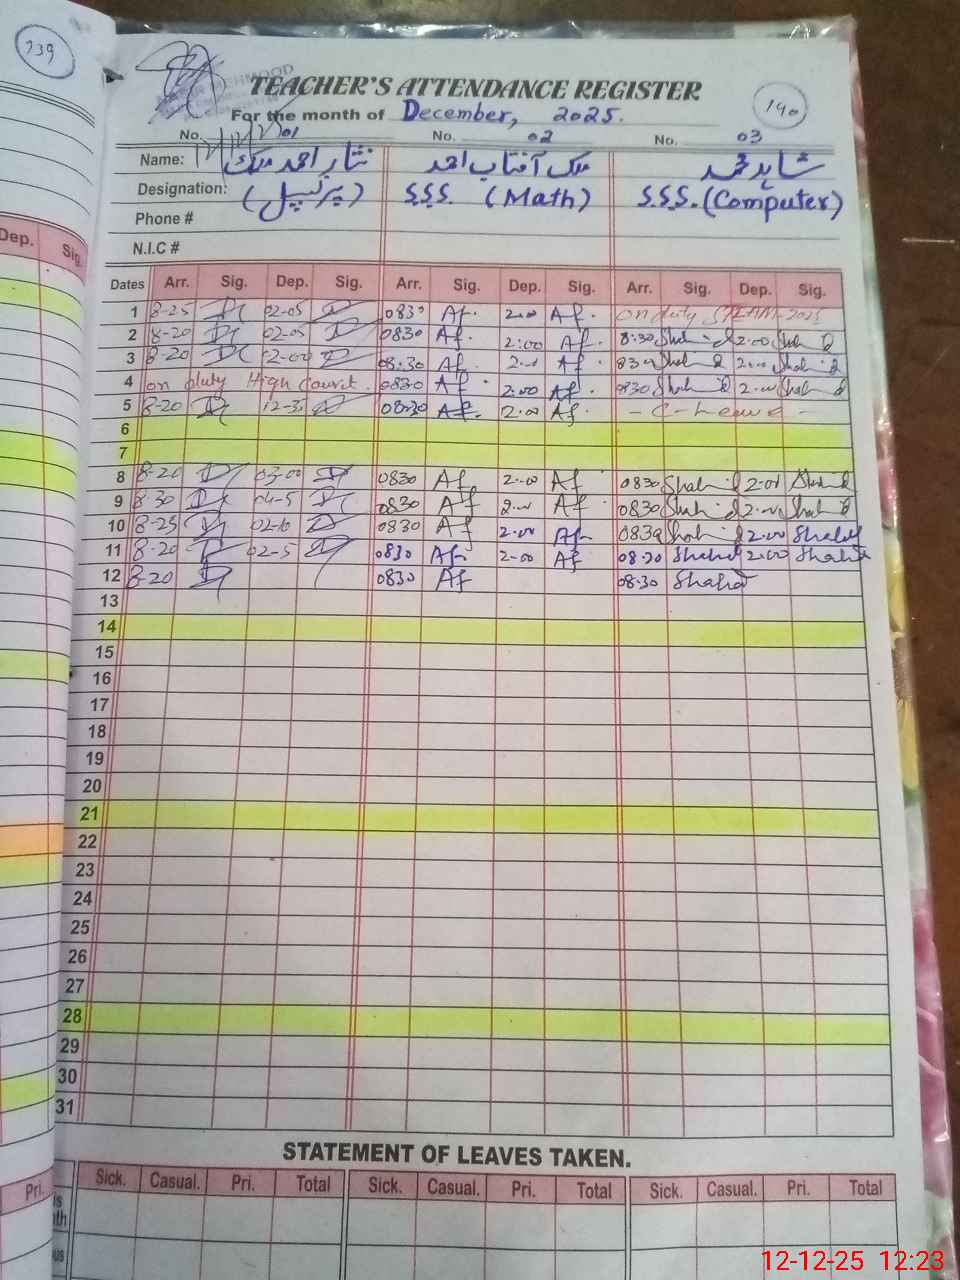 139
TEACHER'S ATTENDANCE REGISTER
190
For the month of December, 2025.
No. 01 No. 02 No. 03
Name: نثار احمد ملک ملک آفتاب احمد شاہد محمد
Designation: (پرنسپل) S.S.S. (Math) S.S.S. (Computer)
Phone #
N.I.C #
Dep. Sig.
Dates Arr. Sig. Dep. Sig. Arr. Sig. Dep. Sig. Arr. Sig. Dep. Sig.
1 8-25 02-05 0830 Af. 2.00 Af. on duty STEAM-2025
2 8-20 02-05 0830 Af. 2:00 Af. 8:30 Shahid 2.00 Shahid
3 8-20 02-00 08:30 Af. 2.00 Af 830 Shahid 2.00 Shahid
4 on duty High Court. 0830 Af 2:00 Af. 0830 Shahid 2.00 Shahid
5 8-20 12-30 08:30 Af. 2.00 Af. - C-Leave -
6
7
8 8-20 03-00 0830 Af 2.00 Af 0830 Shahid 2.00 Shahid
9 8-30 04-5 0830 Af 2.00 Af. 0830 Shahid 2.00 Shahid
10 8-25 02-10 0830 Af 2.00 Af. 0830 Shahid 2.00 Shahid
11 8-20 02-5 0830 Af. 2-00 Af 08.30 Shahid 2.00 Shahid
12 8-20 0830 Af 08.30 Shahid
13
14
15
16
17
18
19
20
21
22
23
24
25
26
27
28
29
30
31
STATEMENT OF LEAVES TAKEN.
Pri. Sick. Casual. Pri. Total Sick. Casual. Pri. Total Sick. Casual. Pri. Total
12-12-25 12:23